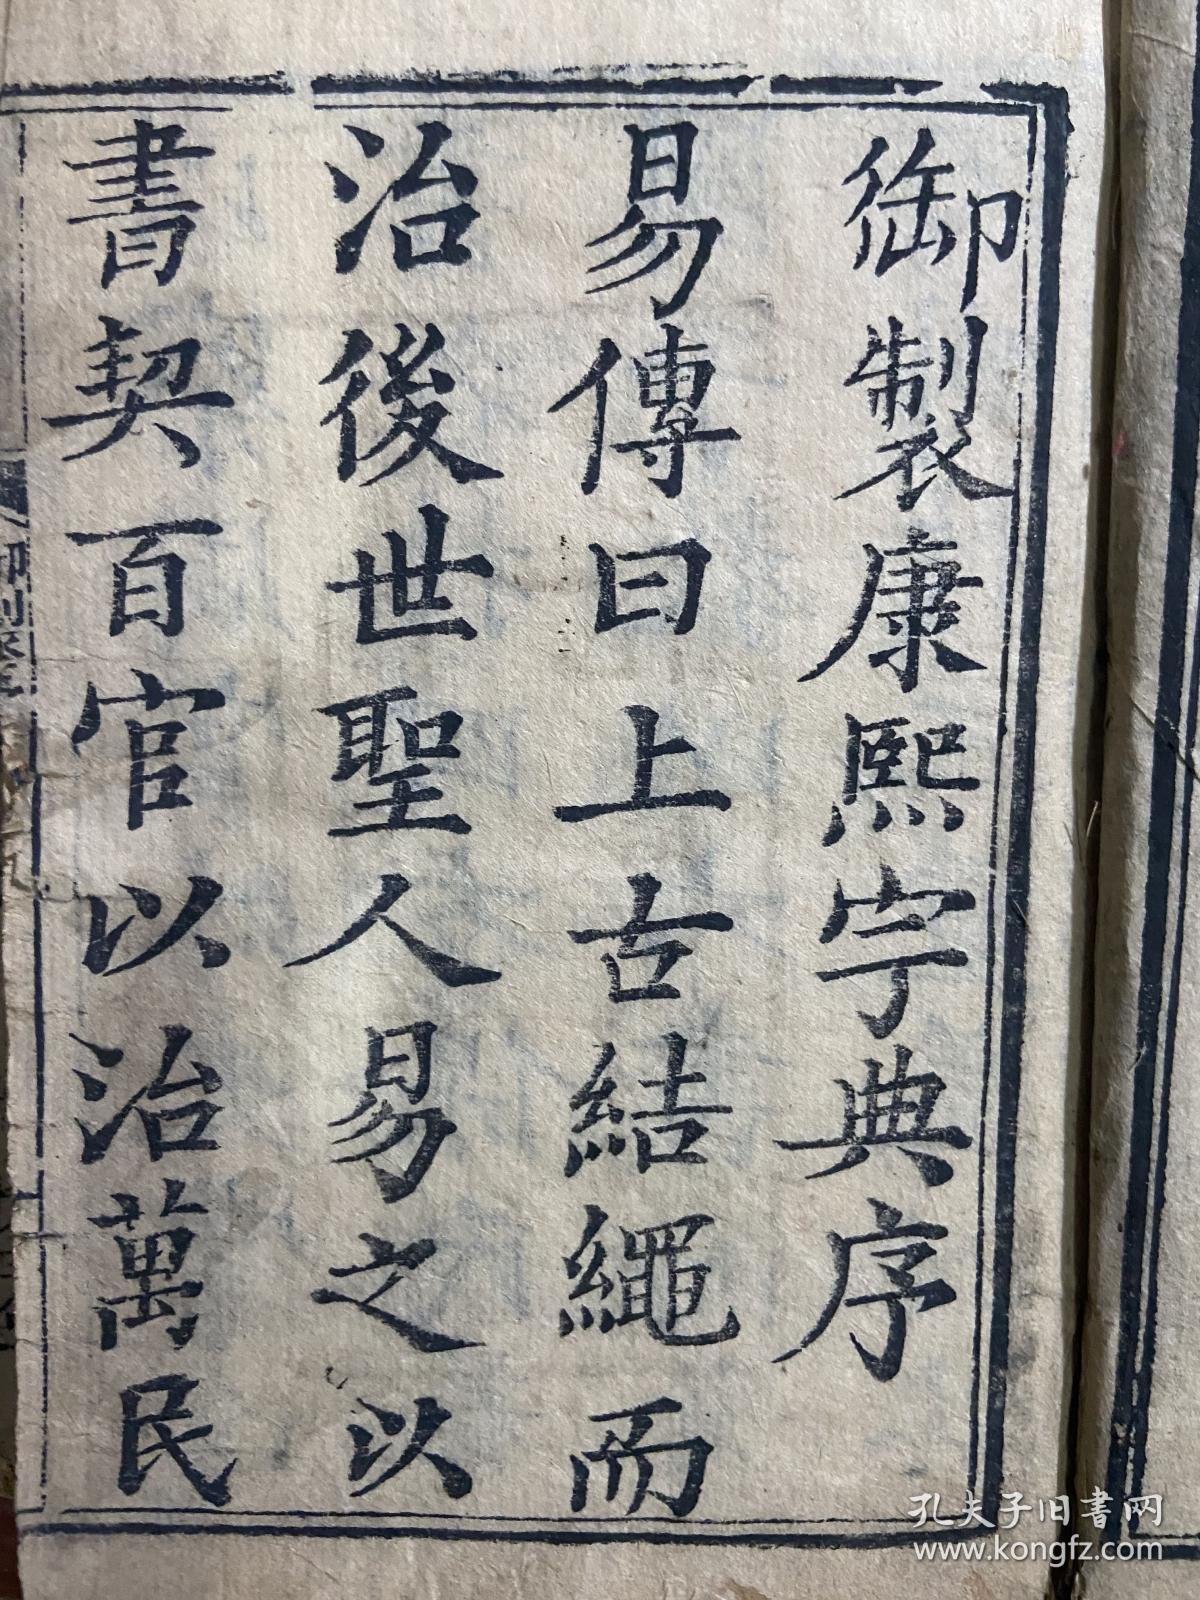 御製康熙字典序
易傳曰上古結繩而
治後世聖人易之以
書契百官以治萬民
孔夫子旧書网
www.kongfz.com